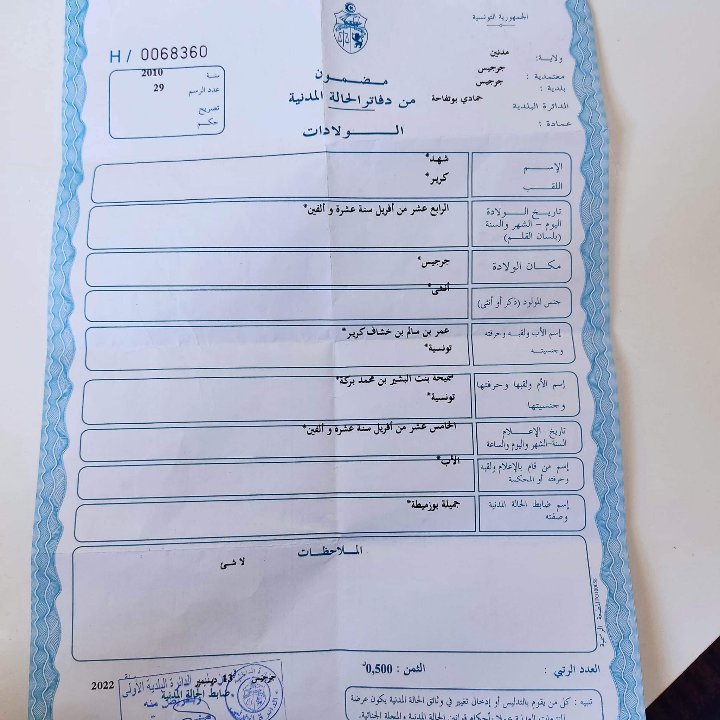 الجمهورية التونسية
ولاية: مدنين
معتمدية: جرجيس
بلدية: جرجيس
الدائرة البلدية حمادي بوتفاحة
عمادة:
H/ 0068360
سنة 2010
عدد الرسم 29
تصريح
حكم
مضمون
من دفاتر الحالة المدنية
الولادات
الإسم شهد*
اللقب كرير*
تاريخ الولادة
اليوم - الشهر والسنة
(بلسان القلم)
الرابع عشر من أفريل سنة عشرة و ألفين*
مكان الولادة جرجيس*
جنس المولود (ذكر أو أنثى) أنثى*
إسم الأب ولقبه وحرفته عمر بن سالم بن خشاف كرير*
وجنسيته تونسية*
إسم الأم ولقبها وحرفتها سميحة بنت البشير بن محمد بركة*
وجنسيتها تونسية*
تاريخ الإعلام
السنة-الشهر واليوم والساعة
الخامس عشر من أفريل سنة عشرة و ألفين*
إسم من قام بالإعلام ولقبه
وحرفته أو المحكمة
الأب*
إسم ضابط الحالة المدنية
وصفته
جميلة بوزميطة*
الملاحظات
لا شئ
العدد الرتبي: الثمن: 0,500د
جرجيس 13 ديسمبر 2022
الدائرة البلدية الأولى
ضابط الحالة المدنية
وبتفويض منه
تنبيه: كل من يقوم بالتدليس أو إدخال تغيير في وثائق الحالة المدنية يكون عرضة
قوانين الحالة المدنية والمجلة الجنائية.